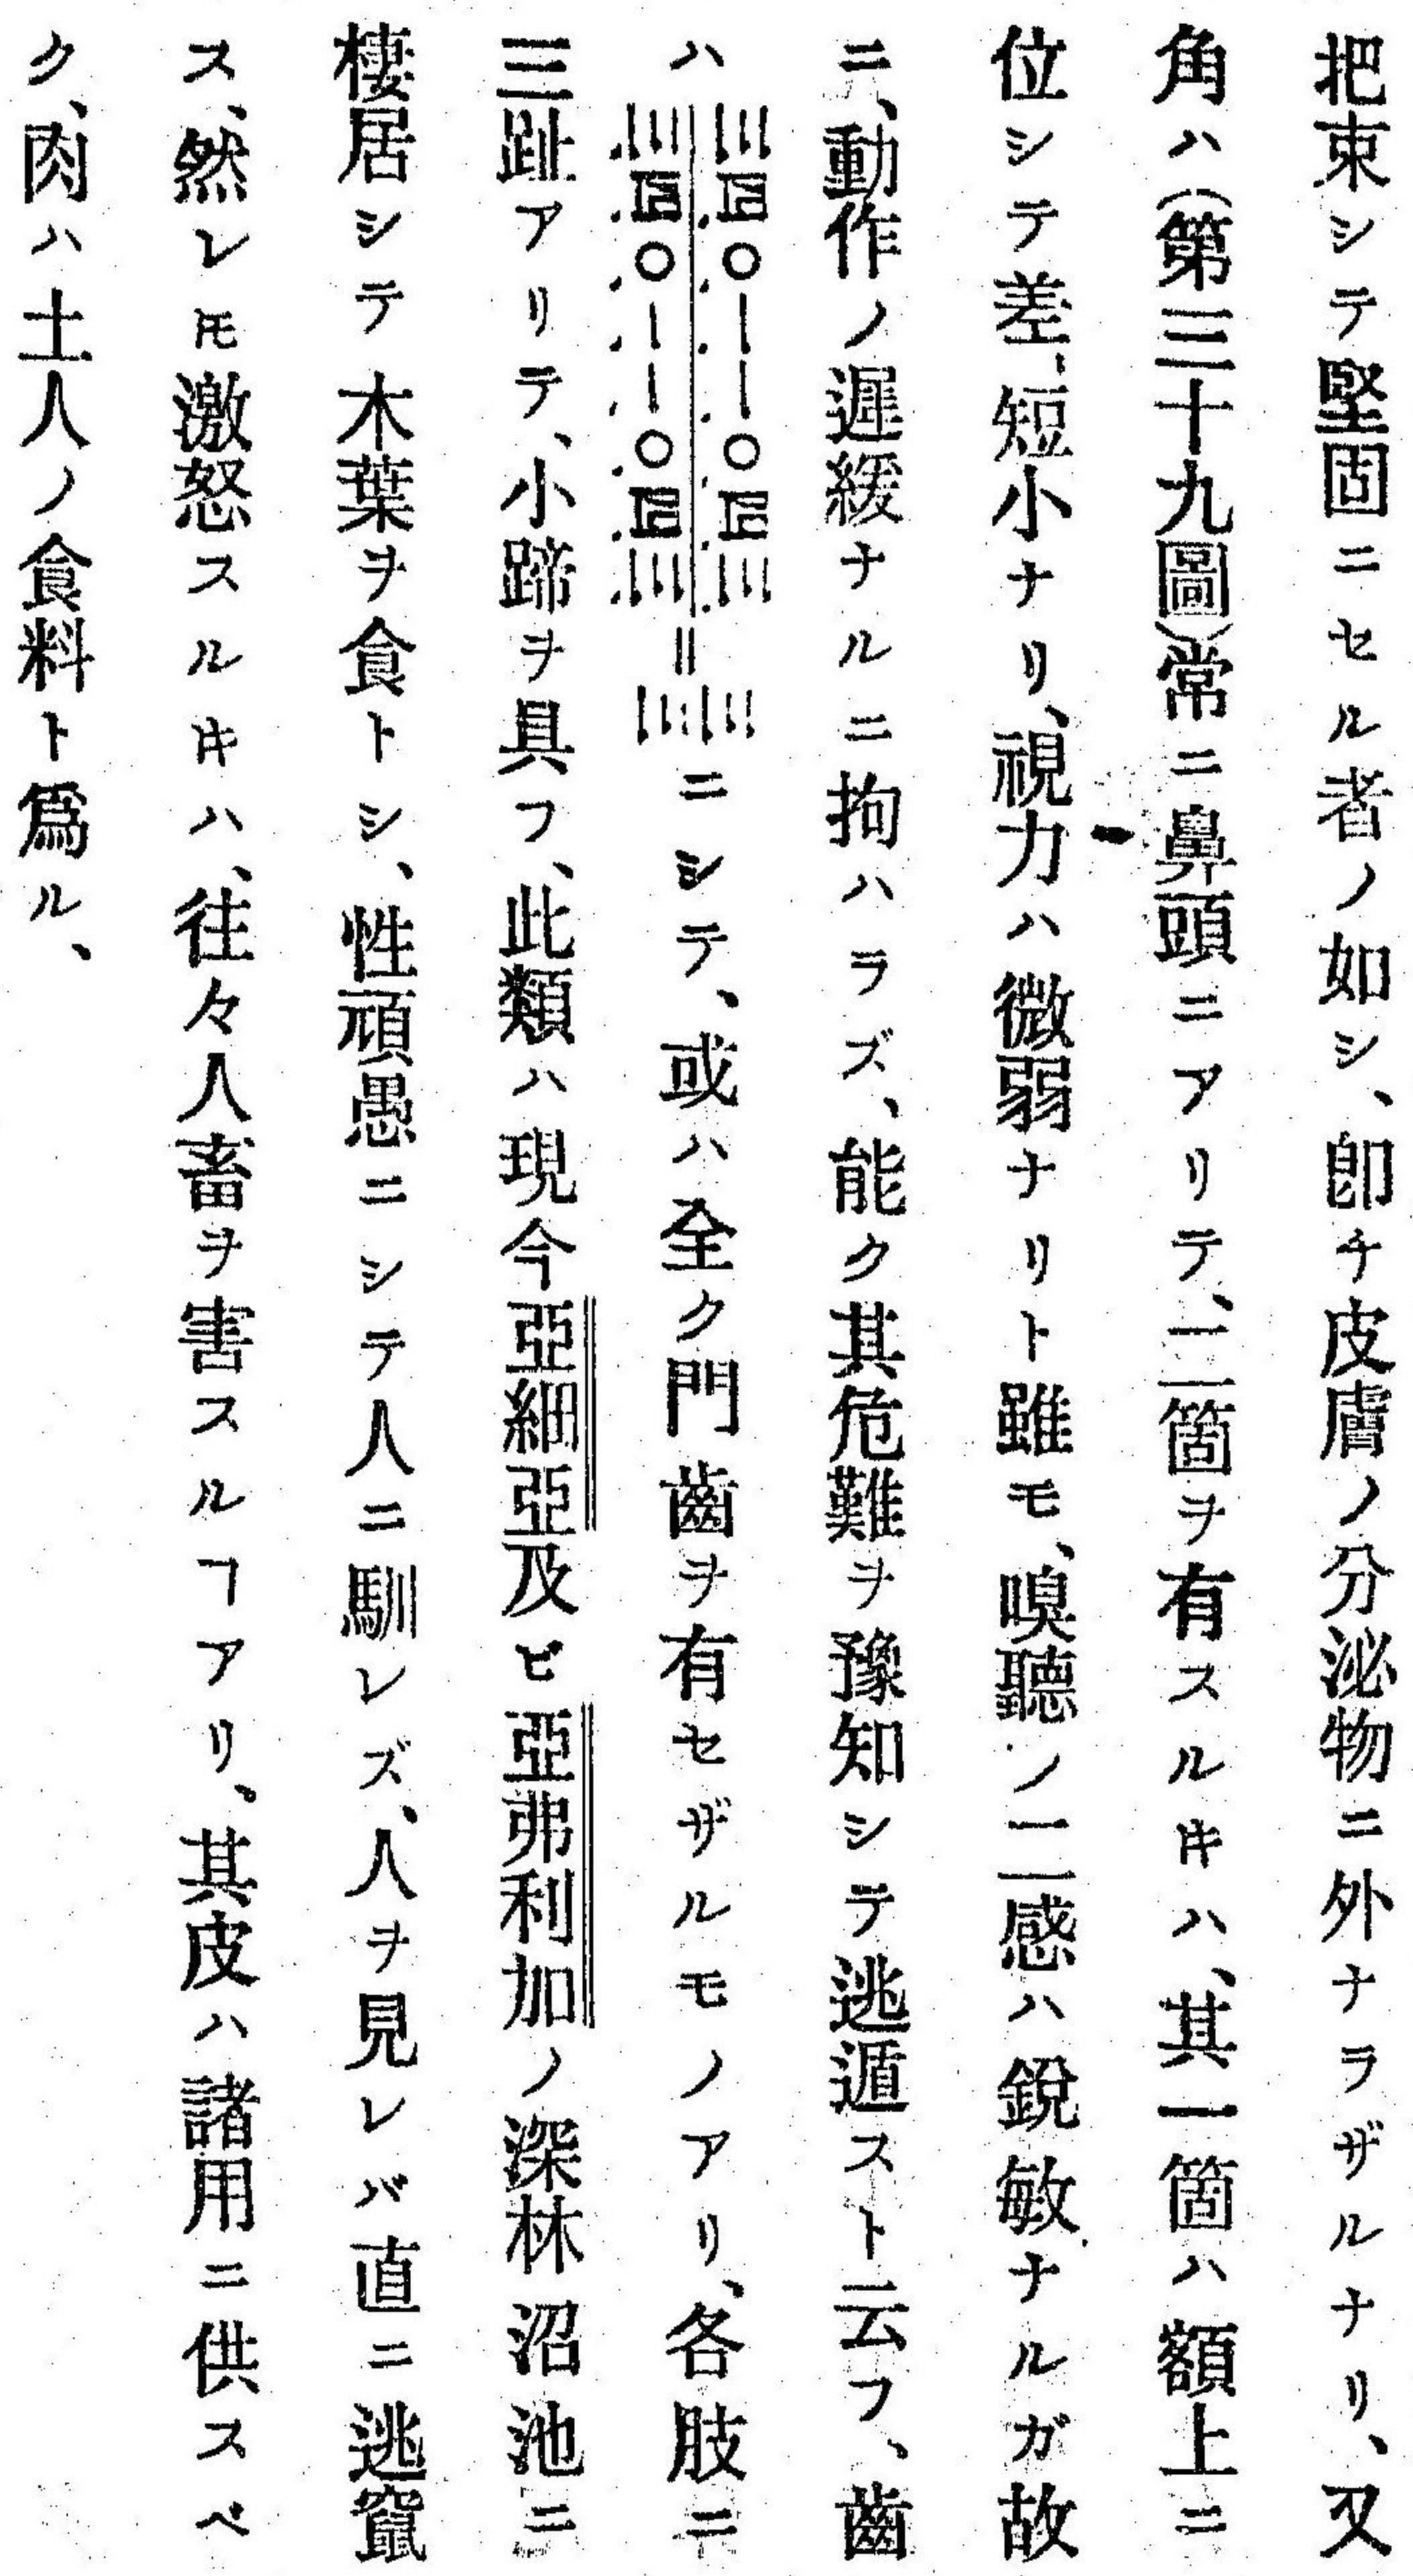 把束シテ堅固ニセル者ノ如シ、卽チ皮膚ノ分泌物ニ外ナラザルナリ、又
角ハ(第三十九圖)常ニ鼻頭ニアリテ、二箇ヲ有スル𬻿ハ、其一箇ハ額上ニ
位シテ差、短小ナリ、視力ハ微弱ナリト雖モ、嗅聽ノ二感ハ銳敏ナルガ故
ニ、動作ノ遲緩ナルニ拘ハラズ、能ク其危難ヲ豫知シテ逃遁スト云フ、齒
ハ三.四.〇.一.一.〇.四.三/三.四.〇.一.一.〇.四.三=ニシテ、或ハ全ク門齒ヲ有セザルモノアリ、各肢ニ
三趾アリテ、小蹄ヲ具フ、此類ハ現今亞細亞及ビ亞弗利加ノ深林沼池ニ
棲居シテ木葉ヲ食トシ、性頑愚ニシテ人ニ馴レズ、人ヲ見レバ直ニ逃竄
ス、然レ𪜈激怒スル𬻿ハ、往々人畜ヲ害スルヿアリ、其皮ハ諸用ニ供スベ
ク、肉ハ土人ノ食料ト爲ル、